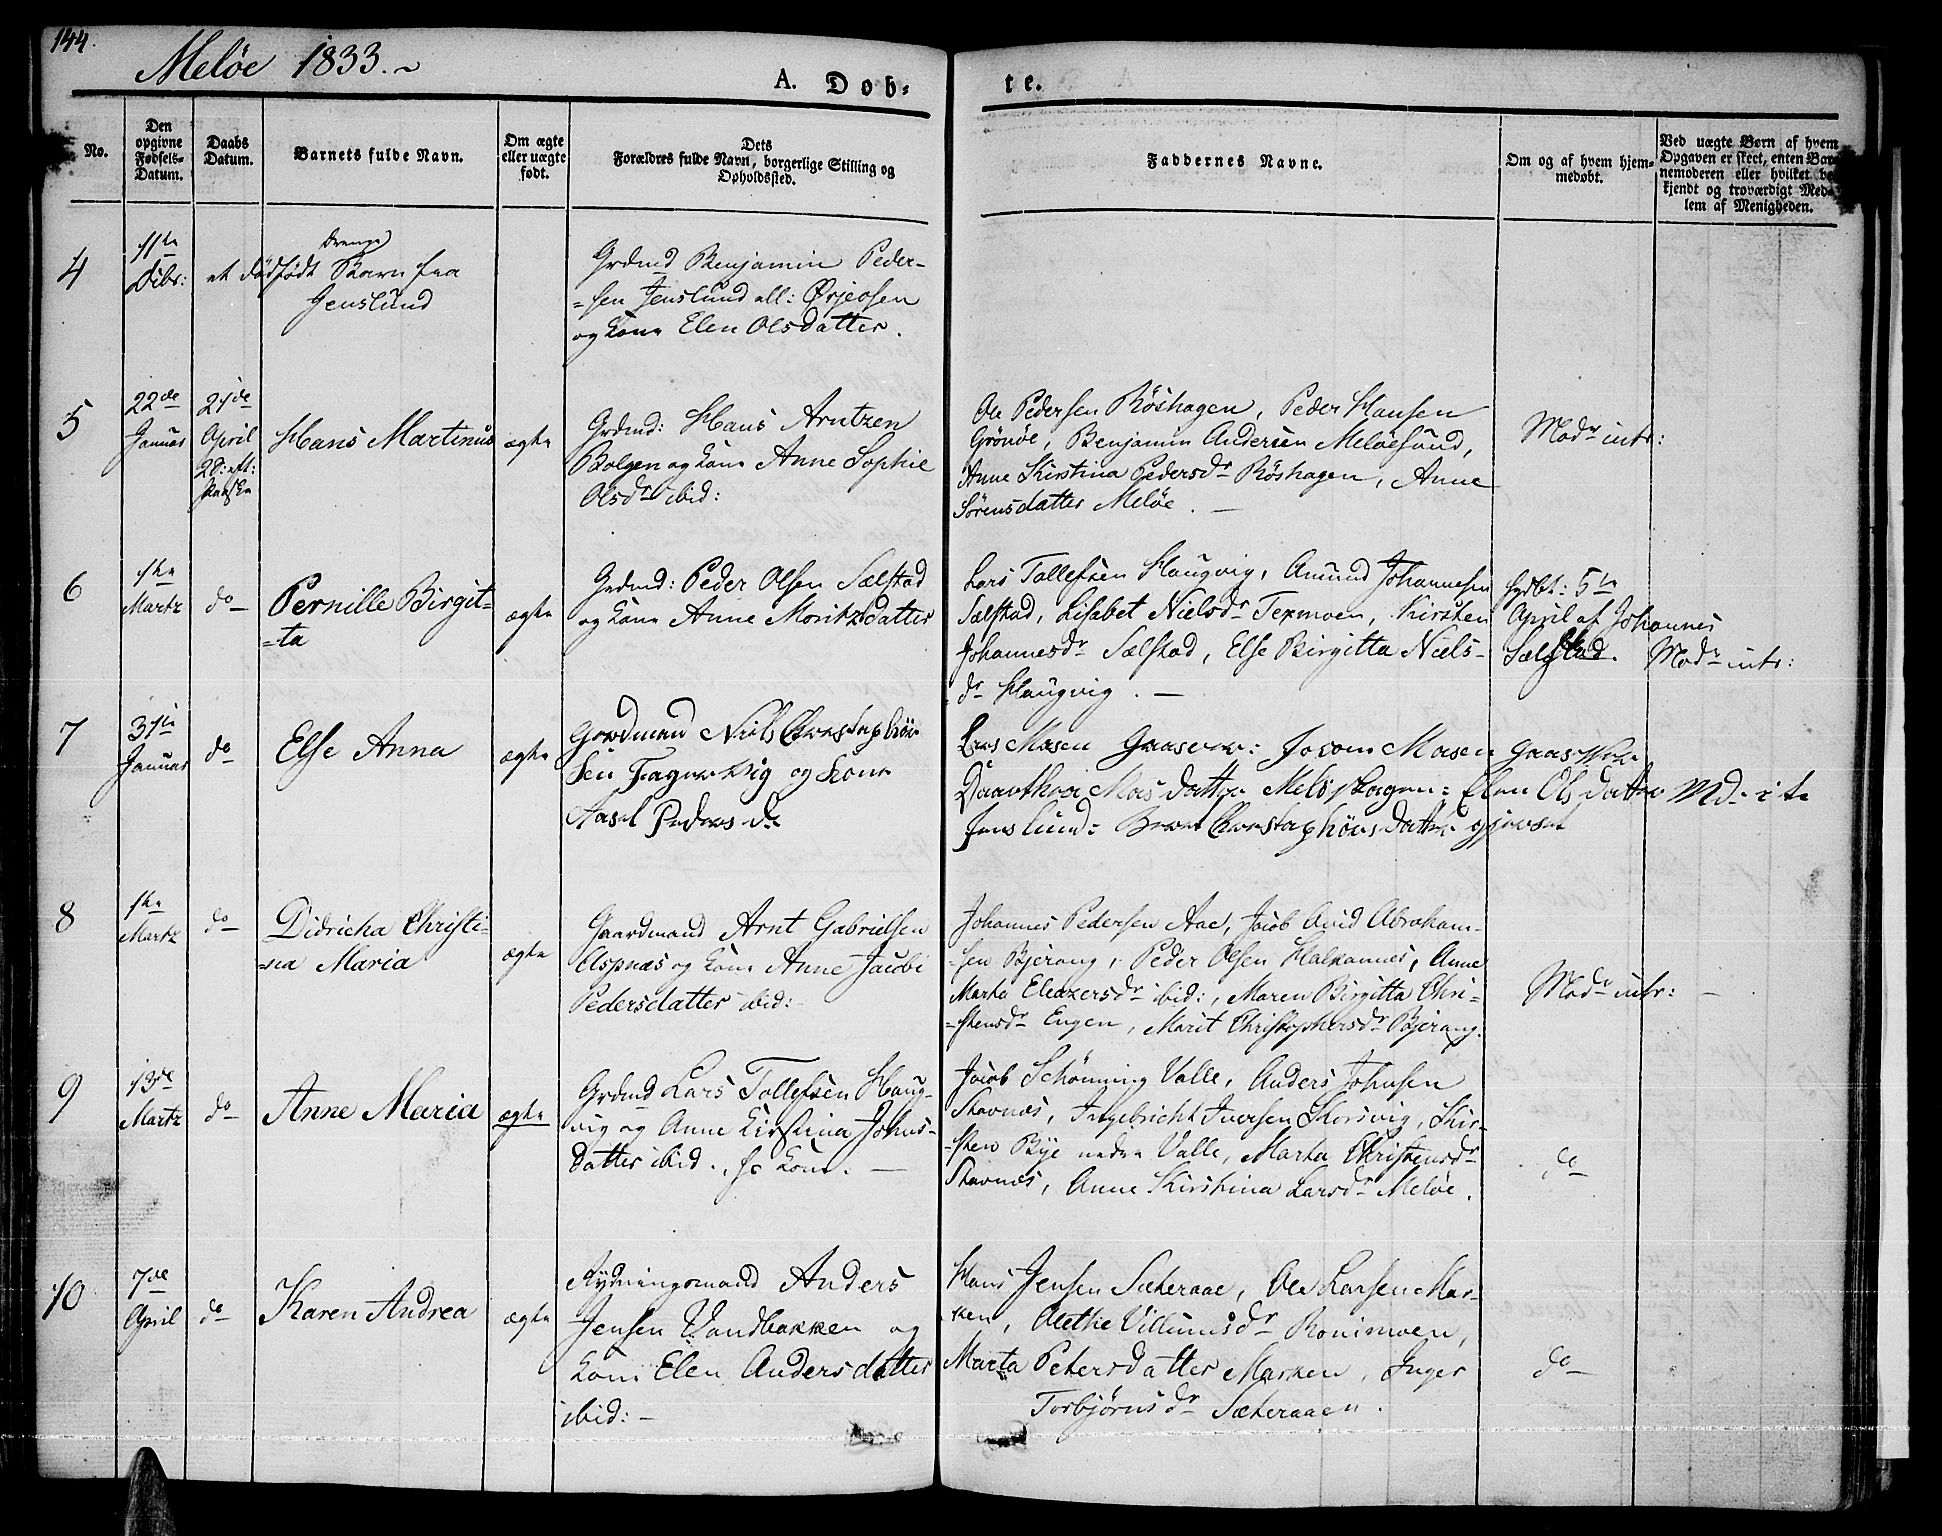 144.
Meløe 1833.~
A. Dob-
te.
No.
Den
opgivne
Fødsels-
Datum.
Daabs
Datum.
Barnets fulde Navn.
Om ægte
eller uægte
født.
Dets
Forældres fulde Navn, borgerlige Stilling og
Opholdssted.
Faddernes Navne.
Om og af hvem hjem-
medøbt.
Ved uægte Børn af hvem
Opgaven er skeet, enten Bar-
nemoderen eller hvilket be-
kjendt og troværdigt Med-
lem af Menigheden.
4
11te
Dcbr:
Drenge
et dødfødt Barn fra
Jenslund
Grdmd Benjamin Peder-
=sen Jenslund all:
og kone Elen Olsdatter.
5
22de
Januar
21de
April
2 S: eft:
Paaske
Hans Martinus
ægte
Grdmd: Hans Arntzen
Bolgen og kone Anne Sophie
Olsdr ibid:
Ole Pedersen Röshagen, Peder Hansen
Grönöe, Benjamin Andersen Meløesund,
Anne Kirstina Pedersdr Röshagen, Anne
Sörensdatter Meløe. —
Modr intr:
6
1ste
Martz
do —
Pernille Birgit-
=ta
ægte
Grdmd: Peder Olsen Sælstad
og kone Anne Moritzdatter
Lars Tollefsen Haugvig, Amund Johannesen
Sælstad, Lisabet Nielsdr Texmoen, Kirsten
Johannesdr Sælstad, Else Birgitta Niels-
dr Haugvig. —
hjdbt: 5te
April af Johannes
Sælstad. Modr intr:
7
31te
Januar
do
Else Anna
ægte
Gordmand Niels Christophör
sen Fagervig og kone
Aasel Peders dr
Lars Masen Gaasvær: Jocom Masen Gaasvær
Daarthea Masdatter Meløshagen: Elen Olsdatter Md- i te
Jenslund: Beret Christophörsdatter
8
1ste
Martz
do —
Didricha Christi-
=na Maria
ægte
Gaardmand Arnt Gabrielsen
Aspnæs og kone Anne Jacobi
Pedersdatter ibid: —
Johannes Pedersen Aae, Jacob Avid Abraham-
=sen Bjerang, Peder Olsen Halkannes, Anne
Marta Eleazersdr ibid:, Maren Birgitta Chri-
=stensdr Engen, Marit Christophersdr Bjerang.
Modr intr: —
9
13de
Martz
do —
Anne Maria
ægte
Grdmd Lars Tollefsen Haug-
vig og Anne Kirstina Johns-
datter ibid., hs kone. —
Jacob Schönning Valle, Anders Johnsen
Stavnæs, Ingebricht Iversen Skorsvig, Kir-
=sten Bye nedre Valle, Marta Christensdr
Stavnes, Anne Kirstina Larsdr Meløe.
do —
10
7de
April
do —
Karen Andrea
ægte
Rydningsmand Anders
Jensen Vandbakken og
kone Elen Andersdatter
ibid: —
Hans Jensen Sæteraae, Ole Larsen Mar-
ken, Olethe Villumsdr Ronimoen,
Marta Petersdatter Marken, Inger
Torbjörnsdr Sæteraaen.
do —